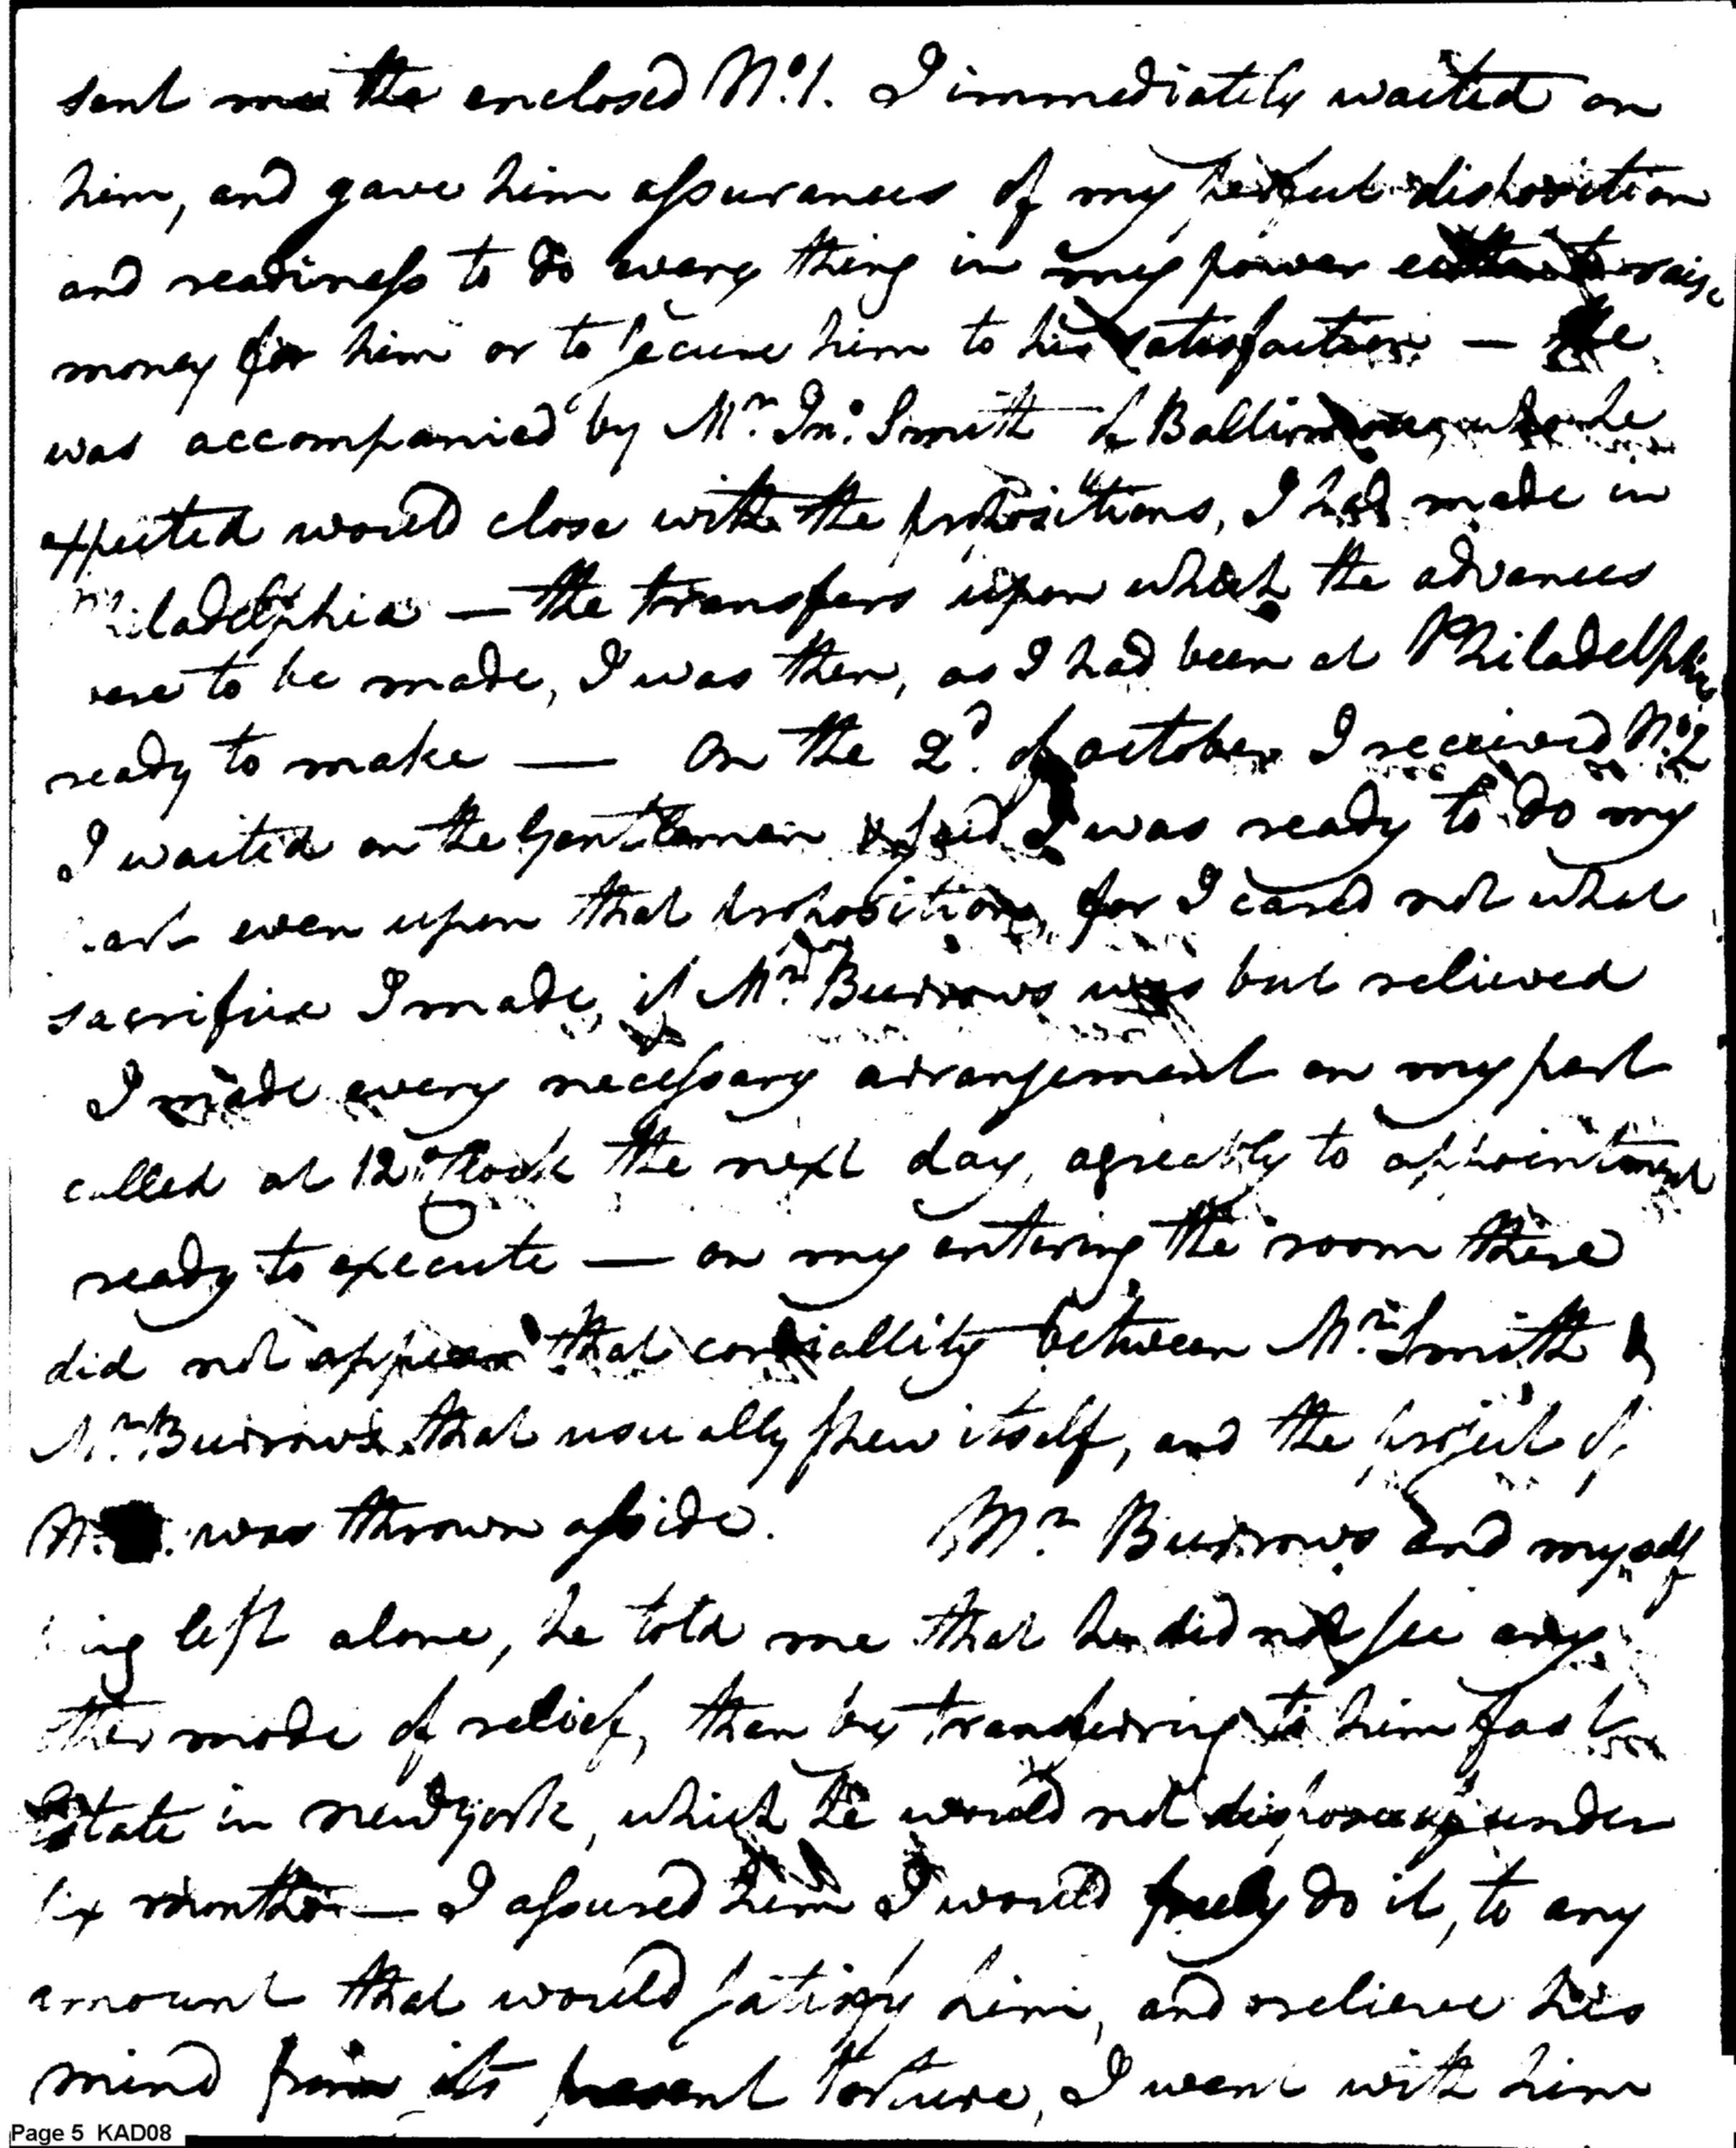 sent me the enclosed No. 1. I immediately waited on
him, and gave him assurances of my perfect disposition
and readiness to do every thing in my power either to raise
money for him or to secure him to his satisfaction — He
was accompanied by Mr. Jno. Smith of Baltimore, who he
expected would close with the propositions, I had made in
Philadelphia — the transfers upon which the advances
were to be made, I was then, as I had been at Philadelphia
ready to make — On the 2d. of october I received No. 2
I waited on the Gentleman & said I was ready to do my
part even upon that proposition, for I cared not what
sacrifice I made, if Mr. Burrows was but relieved
I made every necessary arrangement on my part
called at 12 oClock the next day, agreably to appointment
ready to execute — on my entering the room there
did not appear that cordiallity between Mr. Smith &
Mr. Burrows that usually shew itself, and the project of
No. was thrown asside. Mr. Burrows and myself
being left alone, he told me that he did not see any
other mode of relief, than by transferring to him fast
Estate in new york, which he would not dispose of under
six months — I assured him I would freely do it, to any
amount that would satisfy him, and relieve his
mind from its present torture, I went with him
Page 5 KAD08